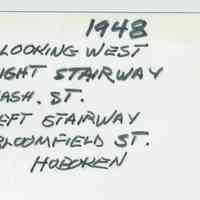 1948
LOOKING WEST
IGHT STAIRWAY
ASH. ST.
EFT STAIRWAY
BLOOMFIELD ST.
HOBOKEN